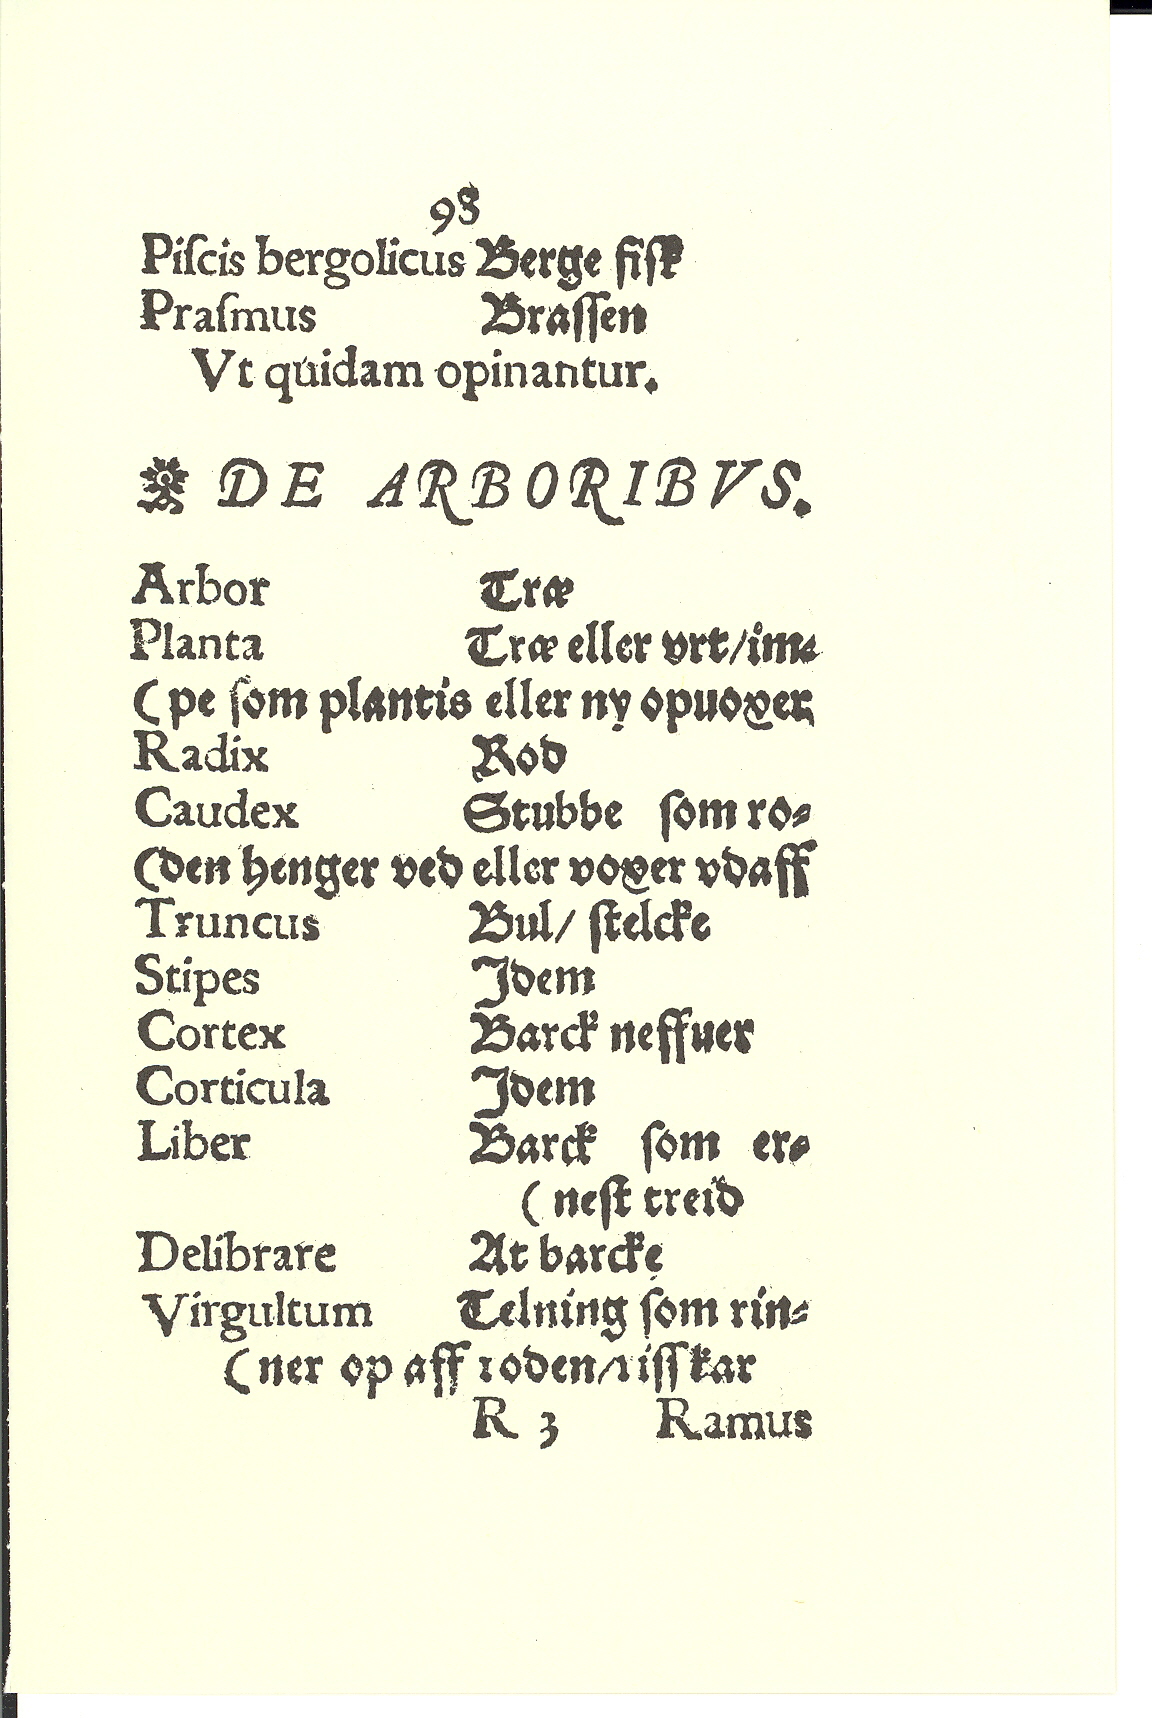 98
Piſcis bergolicus Berge fiſk
Praſmus Braſſen
Vt quidam opinantur.
DE ARBORIBVS.
Arbor Træ
Planta Træ eller vrt/im⸗
(pe ſom plantis eller ny opuoxer
Radix Rod
Caudex Stubbe ſom ro⸗
(den henger ved eller voxer vdaff
Truncus Bul/ ſtelcke
Stipes Idem
Cortex Barck neffuer
Corticula Idem
Liber Barck ſom er⸗
( neſt treid
Delibrare At barcke
Virgultum Telning ſom rin⸗
(ner op aff roden/riſſkar
R 3 Ramus